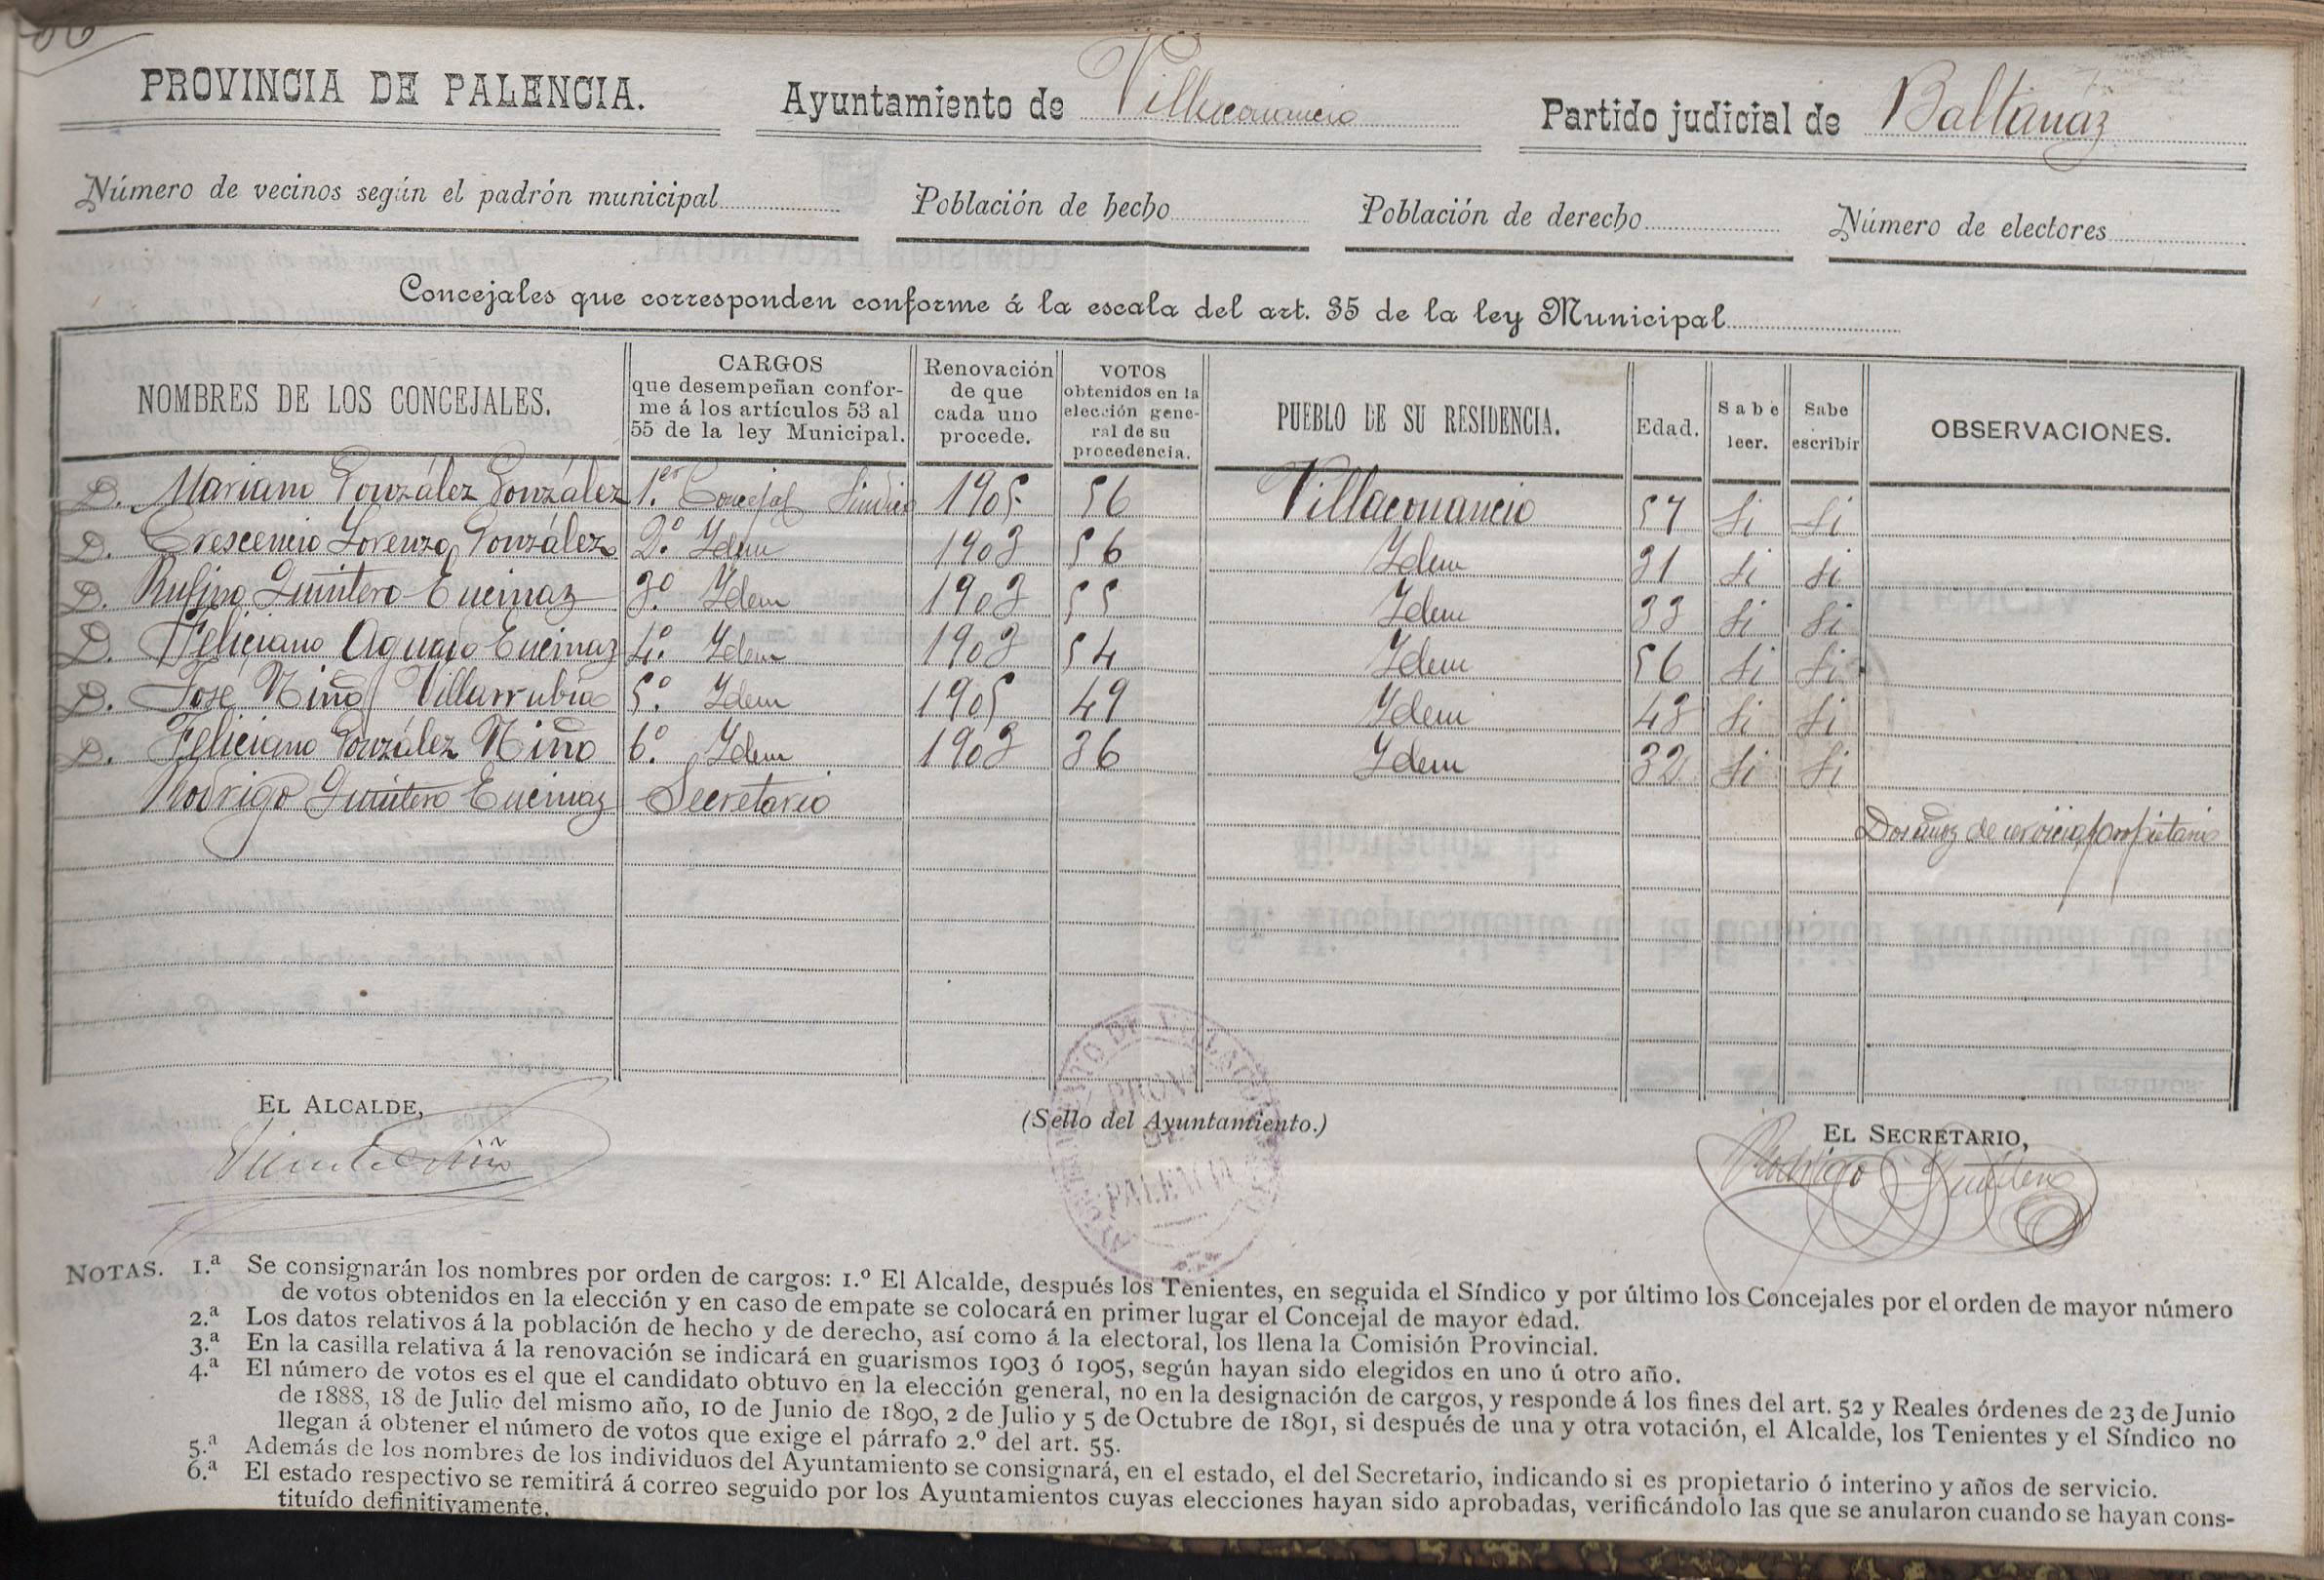 PROVINCIA DE PALENCIA. Ayuntamiento de Villaconancio Partido judicial de Baltanáz
Número de vecinos según el padrón municipal Población de hecho Población de derecho Número de electores
Concejales que corresponden conforme á la escala del art. 35 de la ley Municipal
NOMBRES DE LOS CONCEJALES.
CARGOS
que desempeñan confor-
me á los artículos 53 al
55 de la ley Municipal.
Renovación
de que
cada uno
procede.
VOTOS
obtenidos en la
elección gene-
ral de su
procedencia.
PUEBLO DE SU RESIDENCIA.
Edad.
Sabe
leer.
Sabe
escribir
OBSERVACIONES.
D. Mariano González González 1.er Concejal Síndico 1905 56 Villaconancio 57 Si Si
D. Crescencio Lorenzo González 2.º Idem 1903 56 Idem 31 Si Si
D. Rufino Quintero Encinaz 3.º Idem 1903 55 Idem 33 Si Si
D. Feliciano Aguayo Encinaz 4.º Idem 1903 54 Idem 56 Si Si
D. José Niño Villarrubia 5.º Idem 1905 49 Idem 43 Si Si
D. Feliciano González Niño 6.º Idem 1903 36 Idem 32 Si Si
Rodrigo Quintero Encinaz Secretario Dos años de servicio, propietario
EL ALCALDE, (Sello del Ayuntamiento.) EL SECRETARIO,
Vicente Niño Rodrigo Quintero
PROV.
DE
PALENCIA
NOTAS. 1.ª Se consignarán los nombres por orden de cargos: 1.º El Alcalde, después los Tenientes, en seguida el Síndico y por último los Concejales por el orden de mayor número
de votos obtenidos en la elección y en caso de empate se colocará en primer lugar el Concejal de mayor edad.
2.ª Los datos relativos á la población de hecho y de derecho, así como á la electoral, los llena la Comisión Provincial.
3.ª En la casilla relativa á la renovación se indicará en guarismos 1903 ó 1905, según hayan sido elegidos en uno ú otro año.
4.ª El número de votos es el que el candidato obtuvo en la elección general, no en la designación de cargos, y responde á los fines del art. 52 y Reales órdenes de 23 de Junio
de 1888, 18 de Julio del mismo año, 10 de Junio de 1890, 2 de Julio y 5 de Octubre de 1891, si después de una y otra votación, el Alcalde, los Tenientes y el Síndico no
llegan á obtener el número de votos que exige el párrafo 2.º del art. 55.
5.ª Además de los nombres de los individuos del Ayuntamiento se consignará, en el estado, el del Secretario, indicando si es propietario ó interino y años de servicio.
6.ª El estado respectivo se remitirá á correo seguido por los Ayuntamientos cuyas elecciones hayan sido aprobadas, verificándolo las que se anularon cuando se hayan cons-
tituído definitivamente.